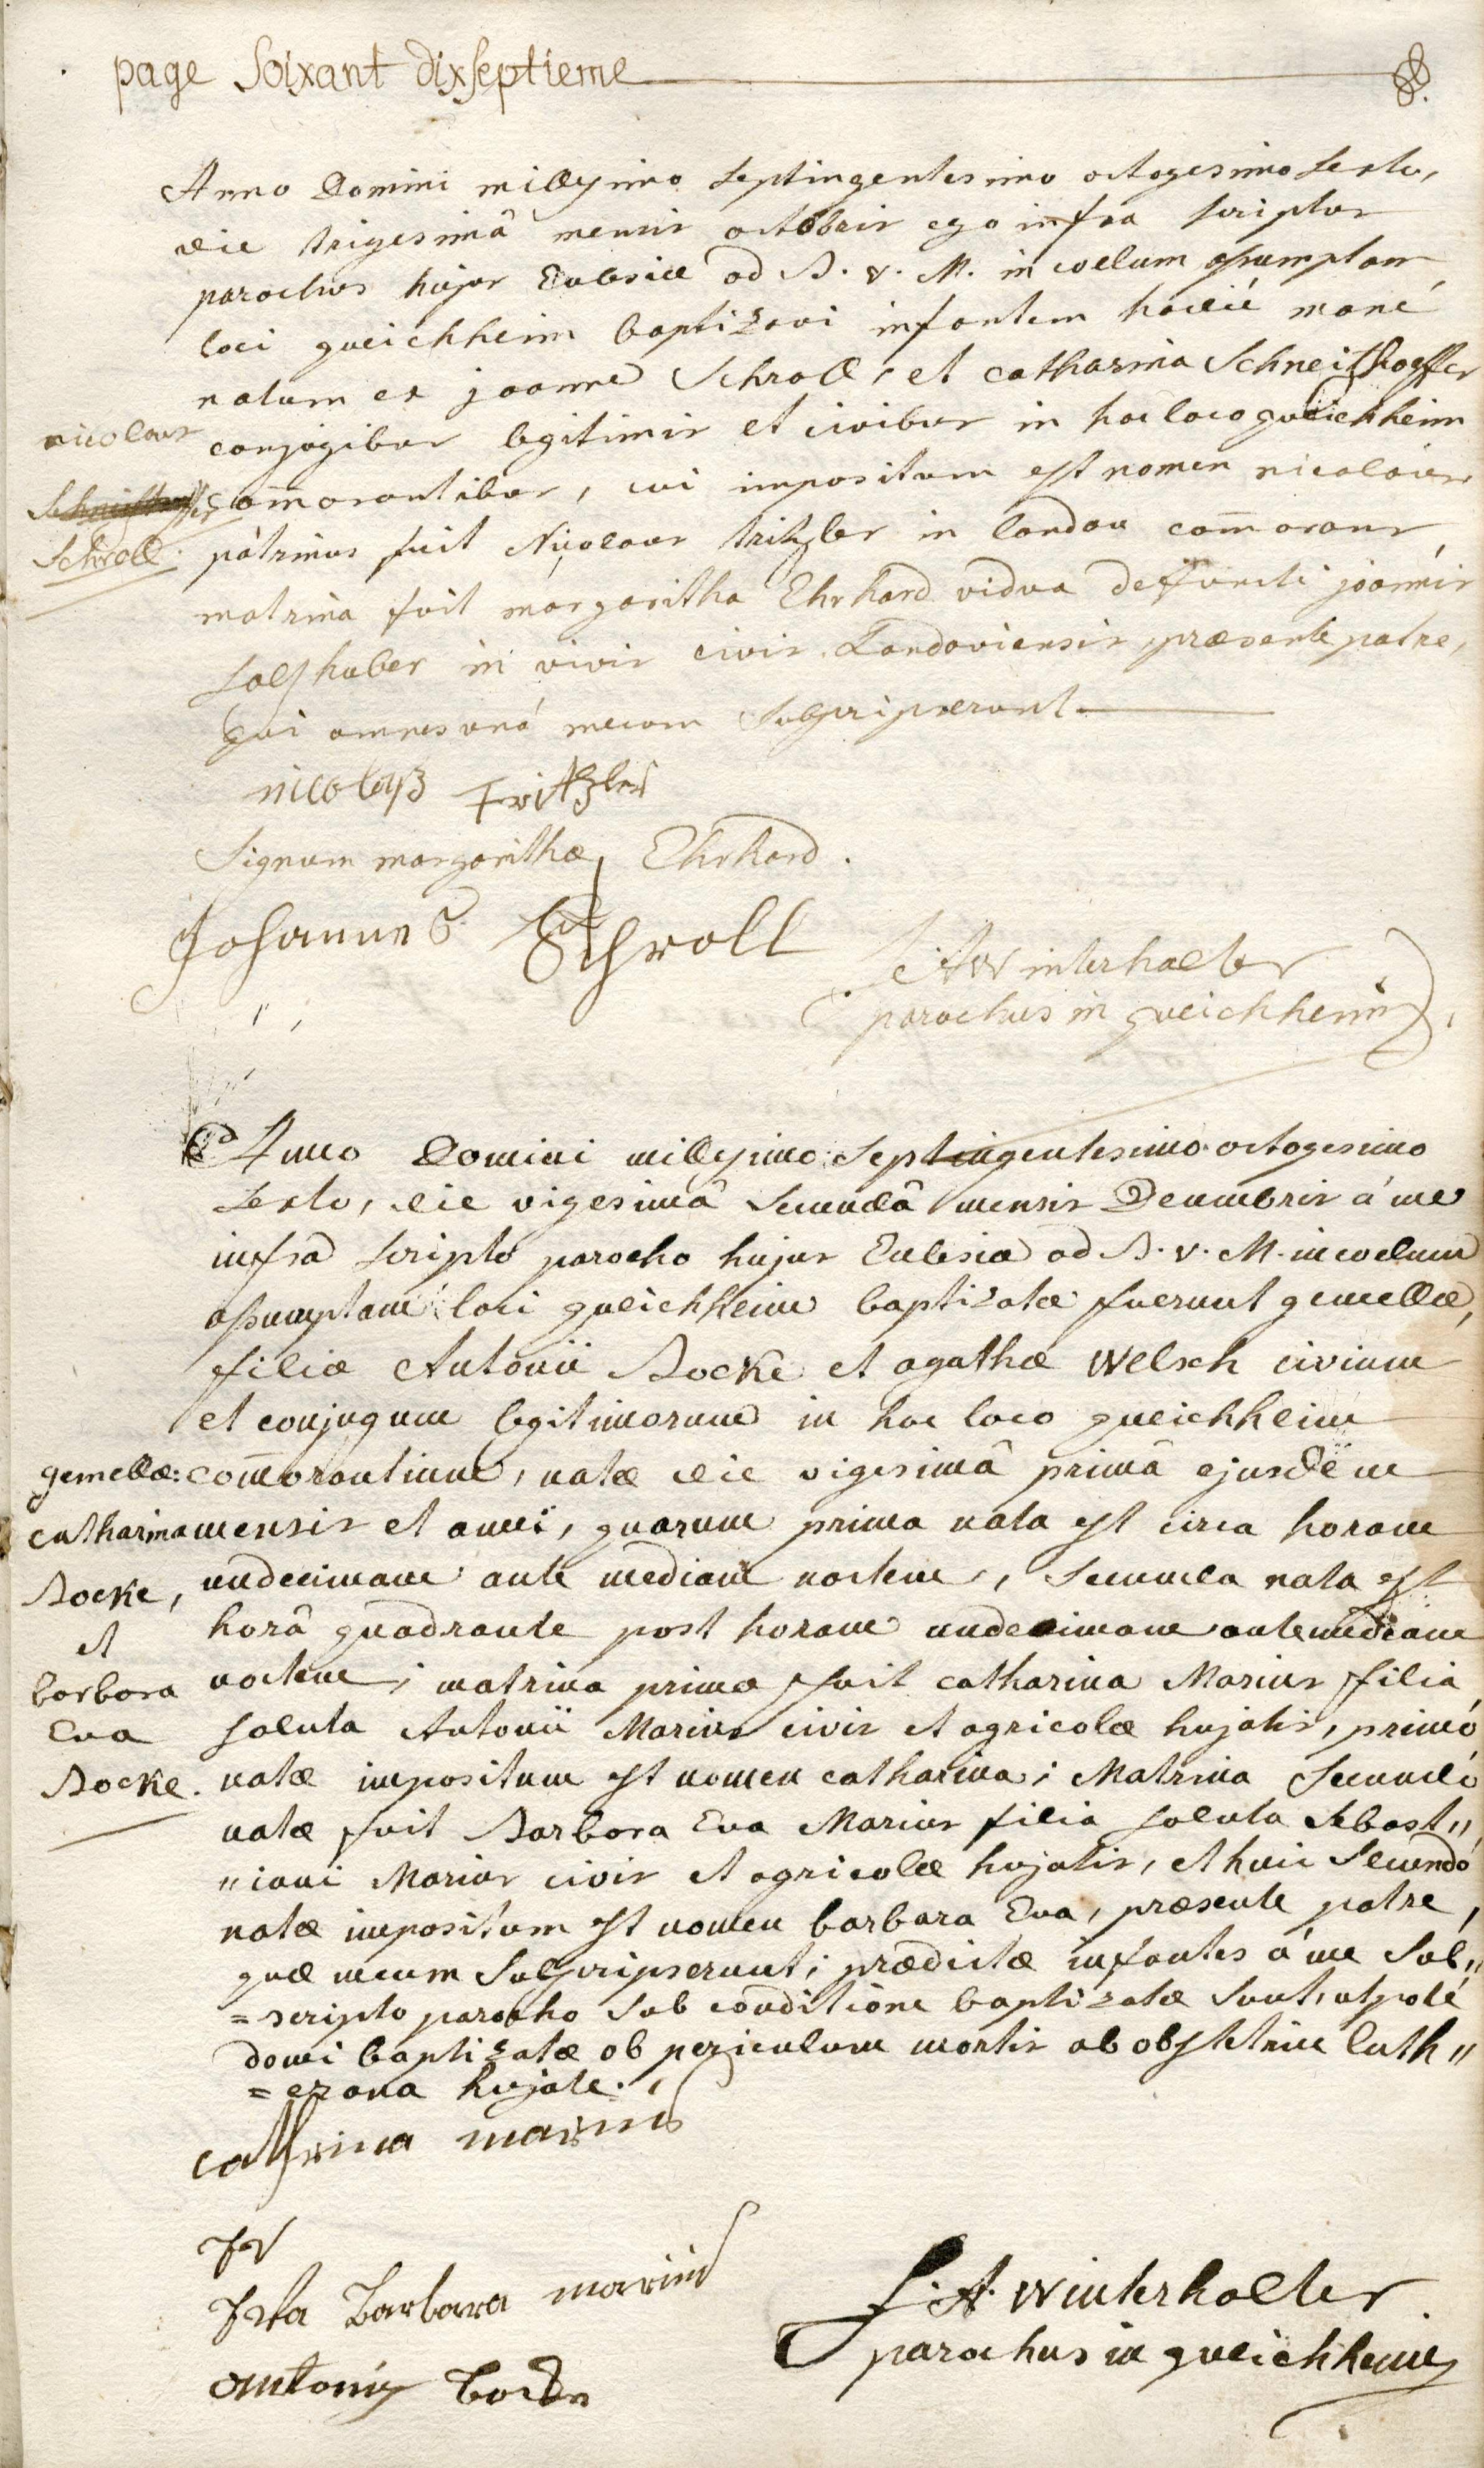 page Soixant dixseptieme
Anno Domini millesimo septingentesimo octogesimo sexto,
die trigesimâ mensis octobris ego infra scriptus
parochus hujus Ecclesiæ ad B. v. M. in coelum assumptam
loci queichheim baptizavi infantem hodié mané
natum ex joanne Schroll, et catharina Schneithoffer
conjugibus legitimis et civibus in hoc loco queichheim
com̄orantibus, cui impositum est nomen nicolaus
patrinus fuit Nicolaus tritzler in landau com̄orans,
matrina fuit margaritha Ehrhard vidua defuncti joannis
Salshuber in vivis civis Landaviensis, præsente patre,
qui omnes unà mecum subscripserunt
nicolaus
Schroll.
nicolaß Fritzler
Signum margarithæ Ehrhard.
Johannes Schroll
f: A Winterhalter
parochus in queichheim
Anno Domini millesimo septingentesimo octogesimo
sexto, die vigesimâ secundâ mensis Decembris á me
infra scripto parocho hujus Ecclesiæ ad B. v. M. in coelum
assumptam loci queichheim baptizatæ fuerunt gemellæ,
filiæ Antonii Bocke et agathæ Welsch civium
et conjugum legitimorum in hoc loco queichheim
com̄orantium, natæ die vigesimâ primâ ejusdem
mensis et anni, quarum prima nata est circa horam
undecimam ante mediam noctem, secunda nata est
horâ quadrante post horam undecimam ante mediam
noctem; matrina primæ fuit catharina Marius filia
soluta Antonii Marius civis et agricolæ hujatis, primó
natæ impositum est nomen catharina; Matrina secundó
natæ fuit Barbara Eva Marius filia soluta Sebast„
„iani Marius civis et agricolæ hujatis, et huic secundó
natæ impositum est nomen barbara Eva, præsente patre,
quæ mecum subscripserunt; prædictæ infantes á me sub„
=scripto parocho sub conditione baptizatæ sunt, utpoté
domi baptizatæ ob periculum mortis ab obstetrice luth„
=erana hujate.
gemellæ:
catharina
Bocke,
et
barbara
Eva
Bocke.
catharina marius
Barbara marius
antonius
f: A. Winterhalter
parochus in queichheim